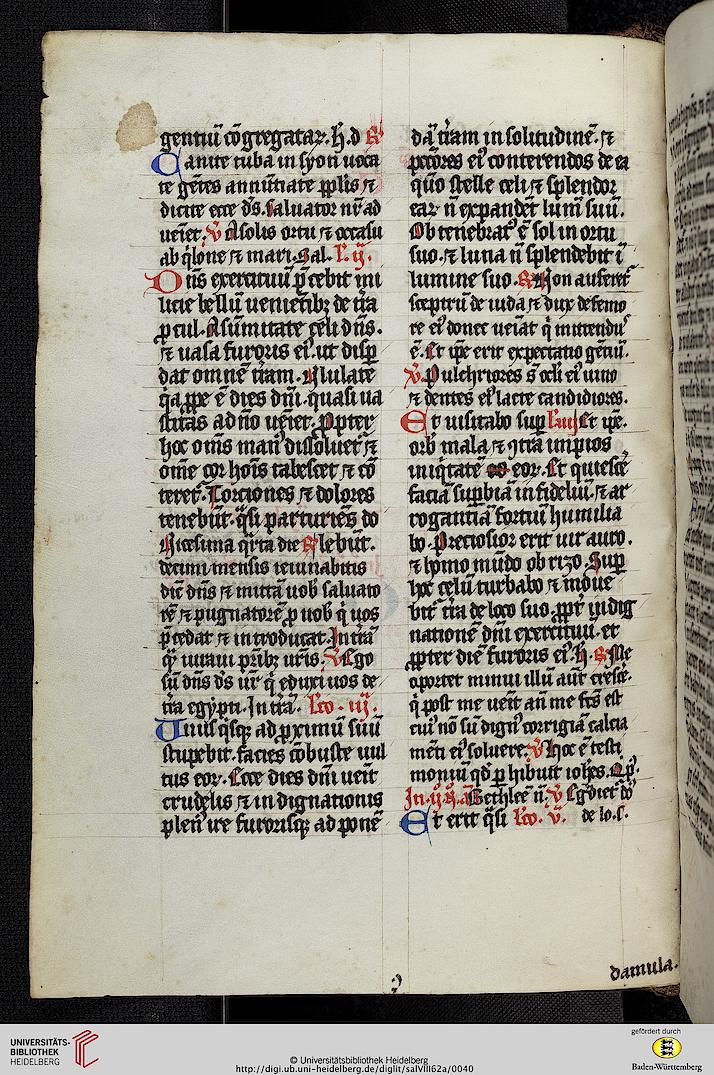 gentiū cōgregatar. h̄. d̄ R
Canite tuba in syon uoca
te gētes annūtiate pplis ⁊
dicite ecce ds̄. saluator nr̄ ad
ueīet. V A solis ortu ⁊ occasu
ab q̇lone ⁊ mari. Sal. L'. ij.
Dn̄s exercituū p̄cebit mi
licie bellū uenietibꝫ de tr̄a
pcul. A sūmitate celi dn̄s.
⁊ uasa furoris ei'. ut disp
dat omnē tr̄am. Ululate
qa ꝓpe ē dies dn̄i. quasi ua
stitas ad n̄o ueīet. Propter
hoc om̄s man' dissoluet' ⁊
om̄e cor hoīs tabescet ⁊ cō
teret'. Torciones ⁊ dolores
tenebūt. q̄si parturiēs do
Vicesima q̄rta die R lebūt.
decimi mensis ieiunabitis
dic̄ dn̄s ⁊ mittā uob saluato
rē ⁊ pugnatorē p uob q̇ uos
p̄cedat ⁊ introducat. In tr̄ā
q̄ iuraui pr̄ibꝫ ur̄is. V Ego
sū dn̄s ds̄ ur̄ q̇ eduxi uos de
tr̄a egypti. In tr̄ā. Lc̄o. iij.
Unus q̄sqꝫ ad ꝓximū suū
stupebit. facies cōbuste uul
tus eor. Ecce dies dn̄i ueīt
crudelis ⁊ indignationis
plen' ire furorisqꝫ ad ponē
dā tr̄am in solitudinē. ⁊
pccōres ei' conterendos de ea
qm̄o stelle celi ⁊ splendor
ear n̄ expandet lum̄ suū.
Obtenebrat' ē sol in ortu
suo. ⁊ luna n̄ splendebit ī
lumine suo. R Non auferet'
sceptrū de iuda ⁊ dux de femo
re ei' donec ueiat q̇ mittendus
ē. Et ip̄e erit expectatio gētiū.
V. Pulchriores s̄ ocl̄i ei' uino
⁊ dentes ei' lacte candidiores.
Et uisitabo sup L'. iiij Et ip̄e.
orb' mala ⁊ ꝯtra impios
iniq̄tatē eor. Et quiescē
faciā supbiā infideliū. ⁊ ar
rogantiā fortiū humilia
bo. Preciosior erit uir auro.
⁊ homo mūdo obrizo. Sup
hoc celū turbabo ⁊ moue
bit' tr̄a de loco suo. ꝓpt' indig
nationē dn̄i exercituū. et
ꝓpter diē furoris ei'. h̄. R Me
oportet minui illū aūt cresce.
q̇ post me ueīt an̄ me fc̄s est
cui' nō sū dign' corrigiā calcia
mēti ei' soluere. V Hoc ē testi
moniū qd̄ phibuit ioh̄es. Q̇ p'.
In. ij. R. a Bethleē n̄. V Egdiet' d̄o
Et erit q̄si Lc̄o. V. de lo. s.
damula.
UNIVERSITÄTS-
BIBLIOTHEK
HEIDELBERG
© Universitätsbibliothek Heidelberg
http://digi.ub.uni-heidelberg.de/diglit/salVIII62a/0040
gefördert durch
Baden-Württemberg